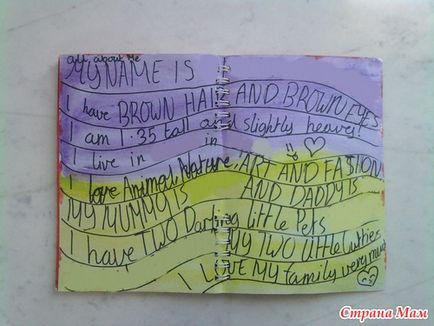 all about me
MY NAME IS
I have BROWN HAIR AND BROWN EYES
I am 1:35 tall and slightly heavey!
I live in in
I love Animal, Nature, ART AND FASION
MY MUMMY IS AND DADDY IS
I have TWO Darling Little Pets
MY TWO Little Cuties
I LOVE MY family very much
Страна Мам